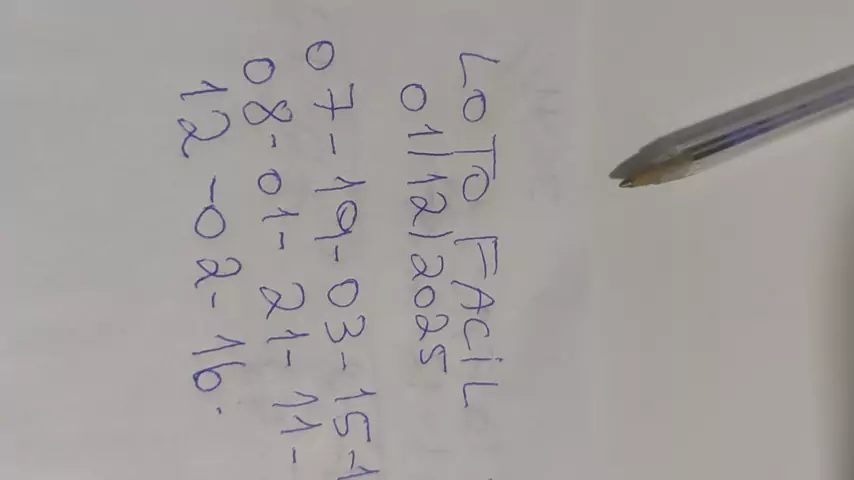 LOTO FACIL
01/12/2025
07-19-03-15-1
08-01-21-11-
12-02-16.